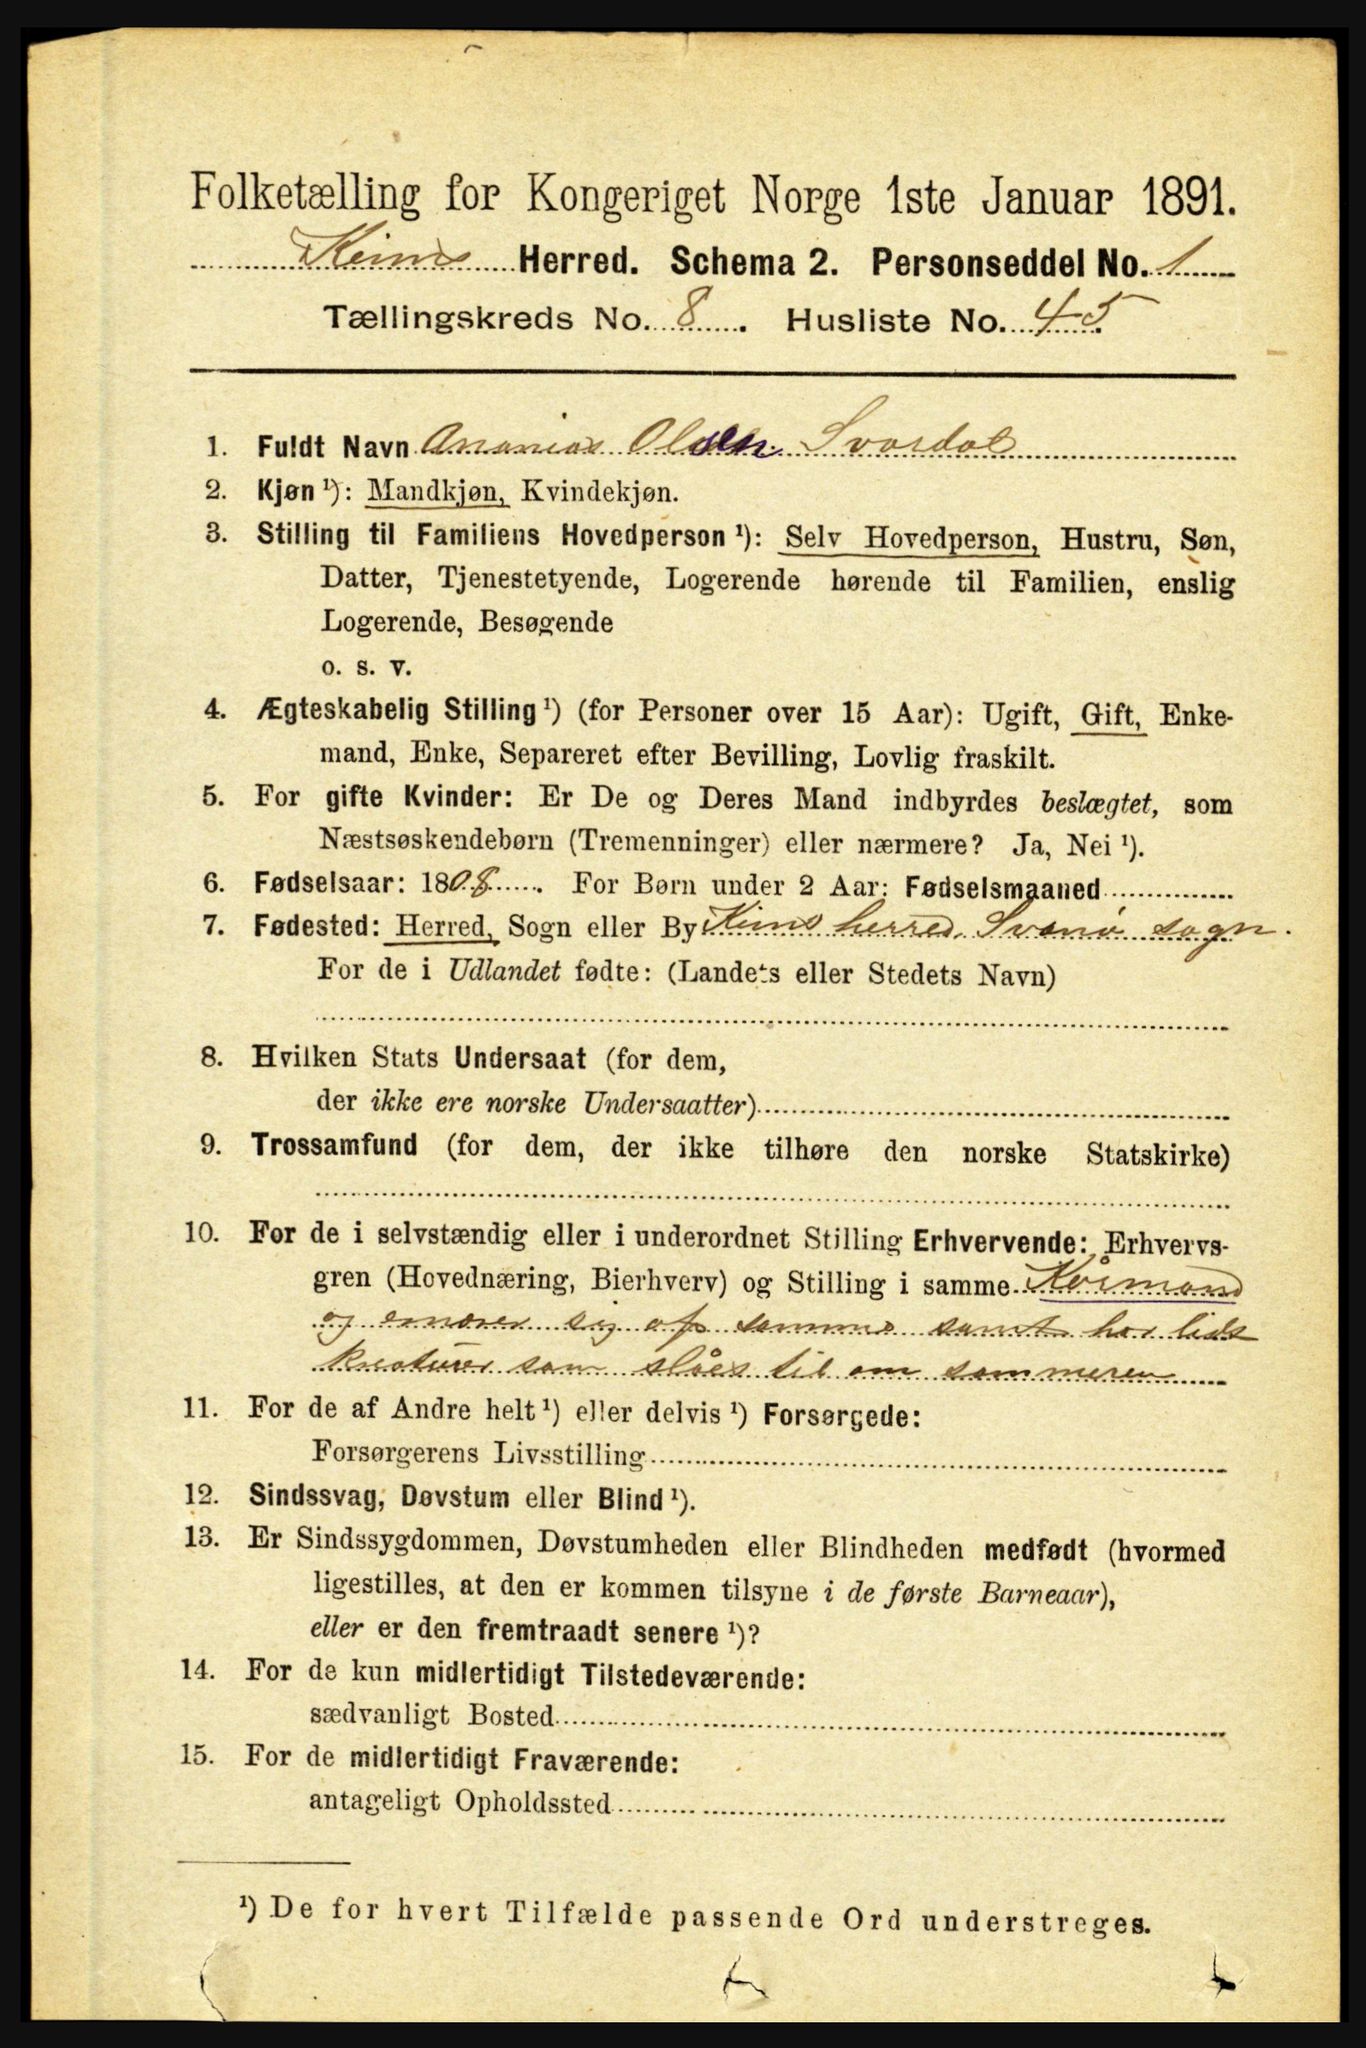 Folketælling for Kongeriget Norge 1ste Januar 1891.
Kinns Herred. Schema 2. Personseddel No. 1
Tællingskreds No. 8. Husliste No. 45.
1. Fuldt Navn Ananias Olsen Svardal
2. Kjøn ¹): Mandkjøn, Kvindekjøn.
3. Stilling til Familiens Hovedperson ¹): Selv Hovedperson, Hustru, Søn,
Datter, Tjenestetyende, Logerende hørende til Familien, enslig
Logerende, Besøgende
o. s. v.
4. Ægteskabelig Stilling ¹) (for Personer over 15 Aar): Ugift, Gift, Enke-
mand, Enke, Separeret efter Bevilling, Lovlig fraskilt.
5. For gifte Kvinder: Er De og Deres Mand indbyrdes beslægtet, som
Næstsøskendebørn (Tremenninger) eller nærmere? Ja, Nei ¹).
6. Fødselsaar: 1808. For Børn under 2 Aar: Fødselsmaaned
7. Fødested: Herred, Sogn eller By Kinns herred, Svanø sogn.
For de i Udlandet fødte: (Landets eller Stedets Navn)
8. Hvilken Stats Undersaat (for dem,
der ikke ere norske Undersaatter)
9. Trossamfund (for dem, der ikke tilhøre den norske Statskirke)
10. For de i selvstændig eller i underordnet Stilling Erhvervende: Erhvervs-
gren (Hovednæring, Bierhverv) og Stilling i samme Kårmand
og ernærer sig af samme samt har lidt
kreaturer som slåes til om sommeren
11. For de af Andre helt ¹) eller delvis ¹) Forsørgede:
Forsørgerens Livsstilling
12. Sindssvag, Døvstum eller Blind ¹).
13. Er Sindssygdommen, Døvstumheden eller Blindheden medfødt (hvormed
ligestilles, at den er kommen tilsyne i de første Barneaar),
eller er den fremtraadt senere ¹)?
14. For de kun midlertidigt Tilstedeværende:
sædvanligt Bosted
15. For de midlertidigt Fraværende:
antageligt Opholdssted
¹) De for hvert Tilfælde passende Ord understreges.